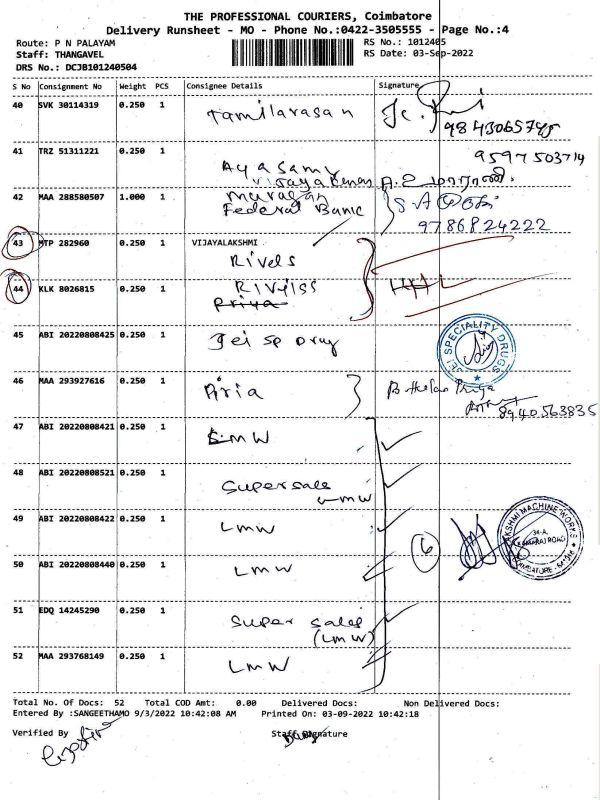 THE PROFESSIONAL COURIERS, Coimbatore
Delivery Runsheet - MO - Phone No.:0422-3505555 - Page No.:4
Route: P N PALAYAM RS No.: 1012405
Staff: THANGAVEL RS Date: 03-Sep-2022
DRS No.: DCJB101240504
S No Consignment No Weight PCS Consignee Details Signature
40 SVK 30114319 0.250 1 Tamilarasan
9843065745
41 TRZ 51311221 0.250 1 Ayyasamy 9597503714
42 MAA 288580507 1.000 1 murugan
Federal Bank 9786824222
43 MTP 282960 0.250 1 VIJAYALAKSHMI
Rivels
44 KLK 8026815 0.250 1
Priya
45 ABI 20220808425 0.250 1 Jei sp Drug JEI SPECIALITY DRUGS
46 MAA 293927616 0.250 1 Priya
8940563835
47 ABI 20220808421 0.250 1 LMW
48 ABI 20220808521 0.250 1 Supersale
LMW
49 ABI 20220808422 0.250 1 LMW
6
LAKSHMI MACHINE WORKS
34-A,
KAMARAJ ROAD
COIMBATORE
50 ABI 20220808440 0.250 1 LMW
51 EDQ 14245290 0.250 1 Super sales
(LMW)
52 MAA 293768149 0.250 1 LMW
Total No. Of Docs: 52 Total COD Amt: 0.00 Delivered Docs: Non Delivered Docs:
Entered By :SANGEETHAMO 9/3/2022 10:42:08 AM Printed On: 03-09-2022 10:42:18
Verified By Staff Signature